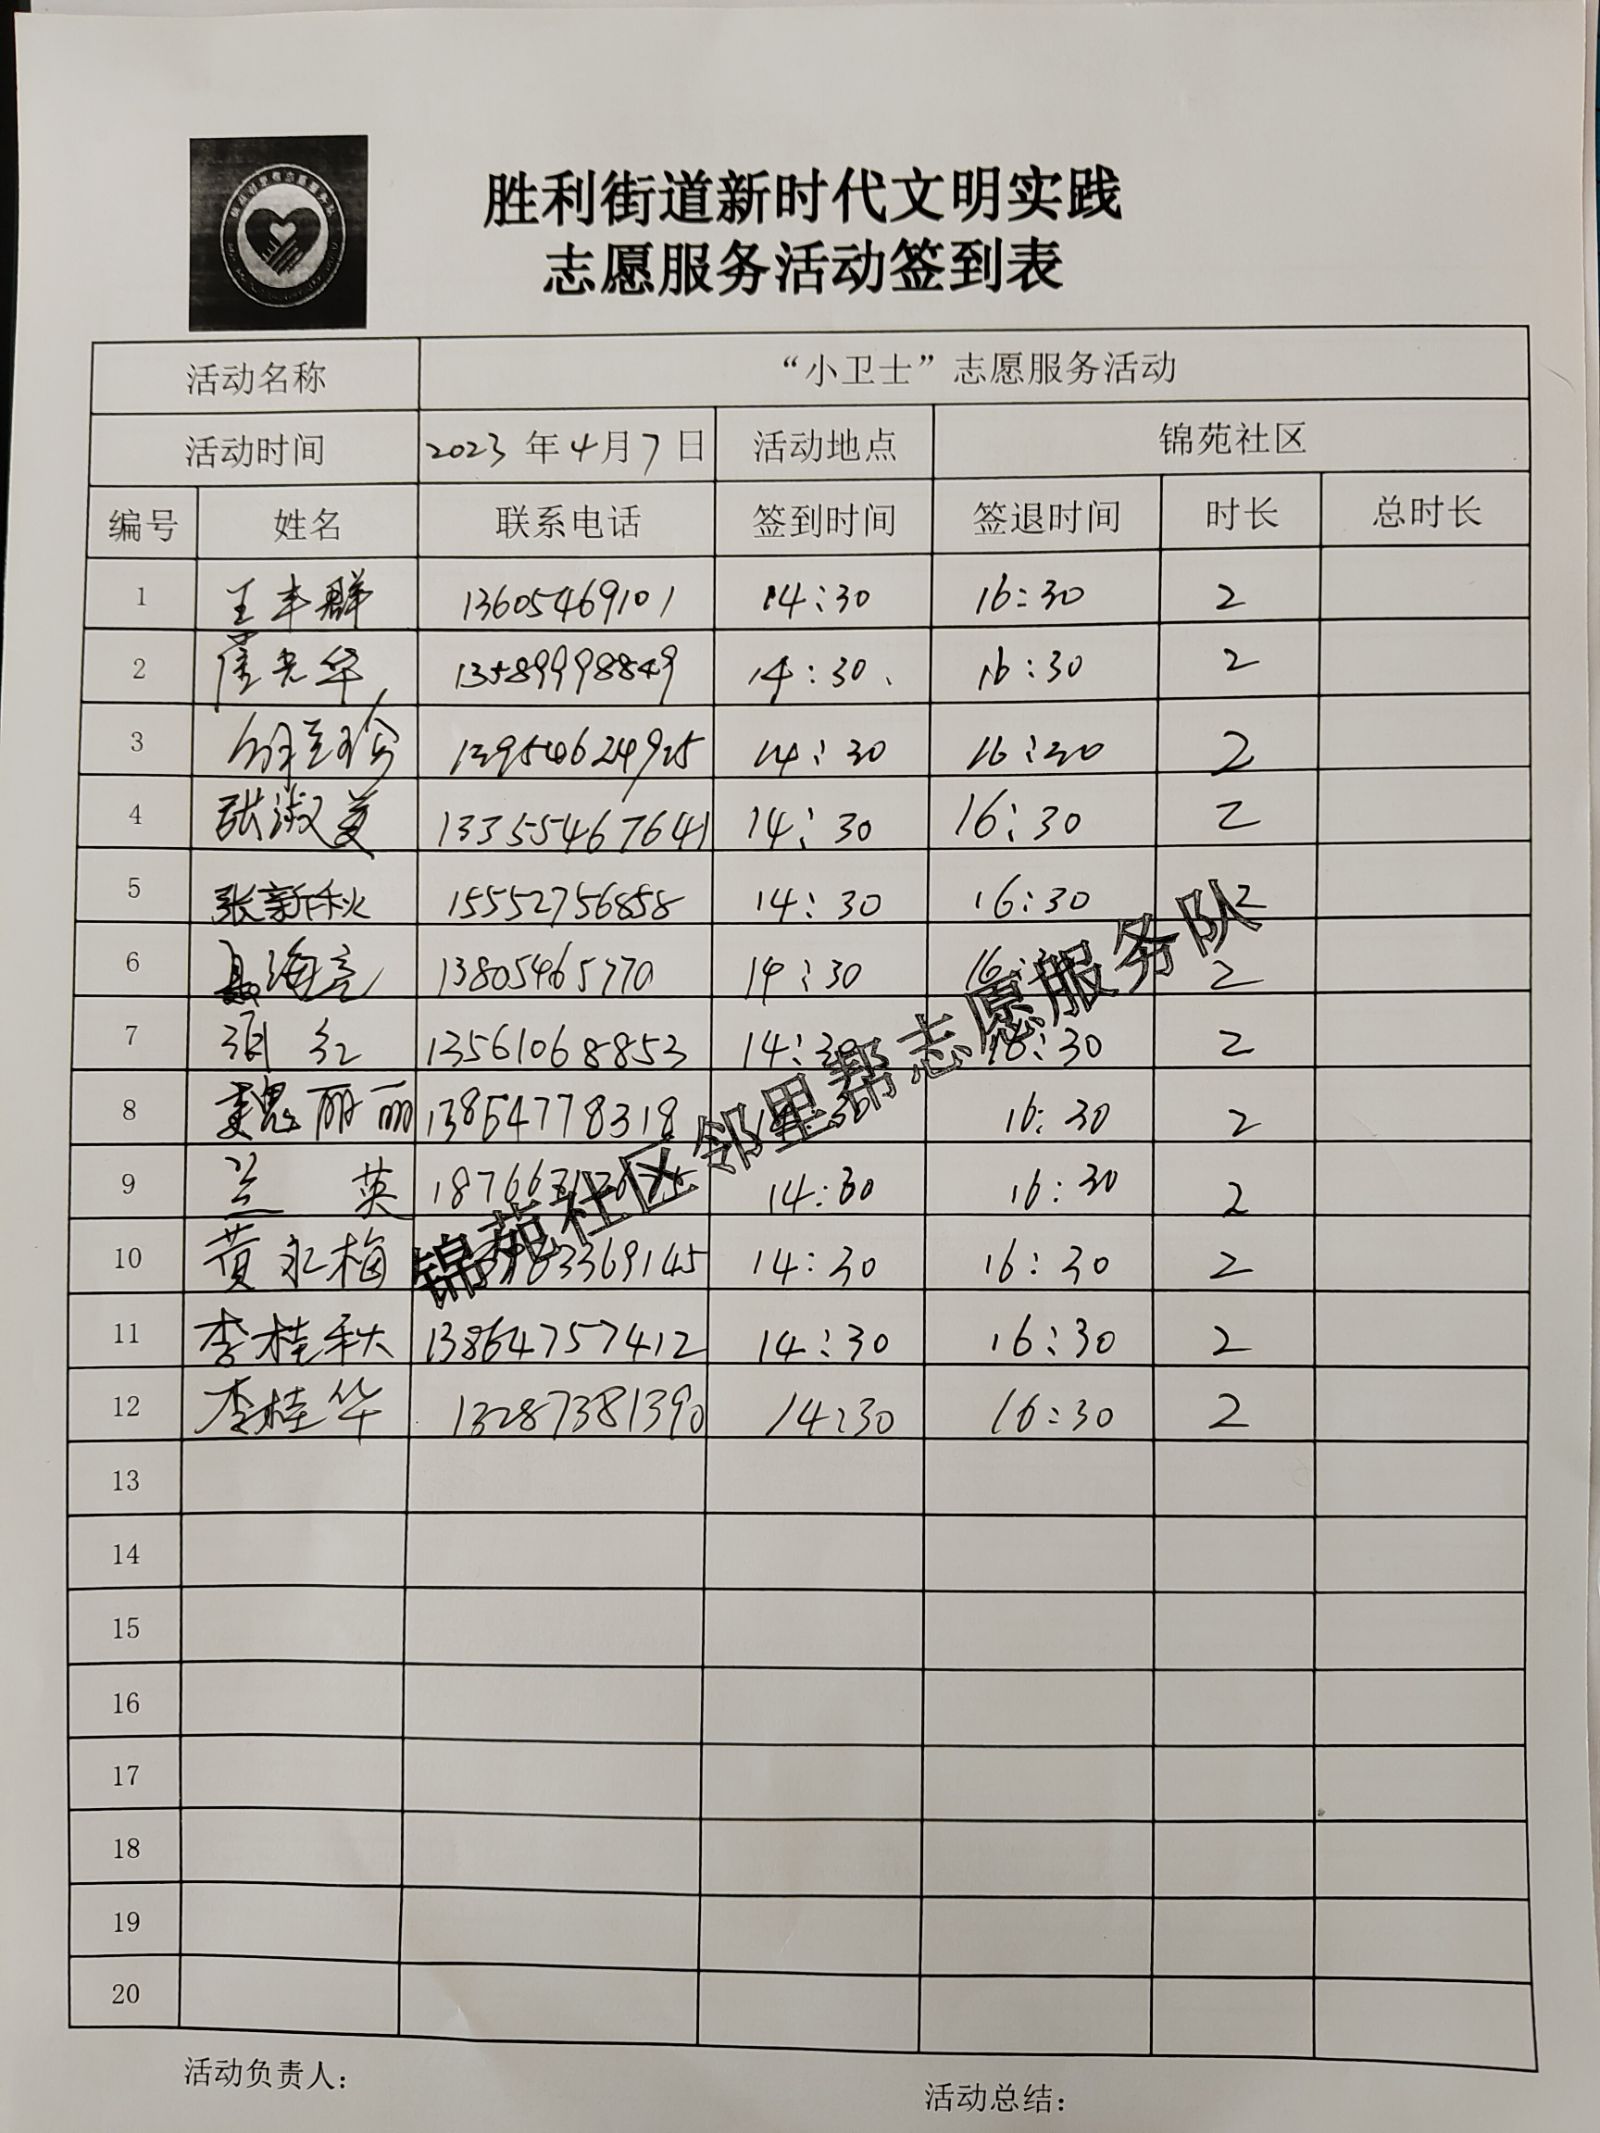 胜利街道新时代文明实践
志愿服务活动签到表
活动名称 “小卫士”志愿服务活动
活动时间 2023年4月7日 活动地点 锦苑社区
编号 姓名 联系电话 签到时间 签退时间 时长 总时长
1 王丰群 13605469101 14:30 16:30 2
2 崔光华 13589998849 14:30 16:30 2
3 13954624925 14:30 16:30 2
4 张淑美 13355467641 14:30 16:30 2
5 张新秋 15552756858 14:30 16:30 2
6 聂海亮 13805465770 14:30 2
7 红 13561068853 14:30 16:30 2
8 魏丽丽 13864778318 14:30 16:30 2
9 兰英 14:30 16:30 2
10 黄永梅 14:30 16:30 2
11 李桂秋 13864757412 14:30 16:30 2
12 李桂华 13287381390 14:30 16:30 2
13
14
15
16
17
18
19
20
锦苑社区邻里帮志愿服务队
活动负责人:
活动总结: